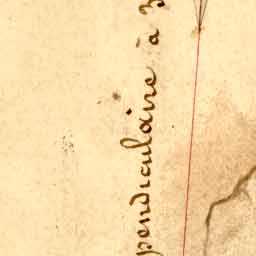 pendiculaire à